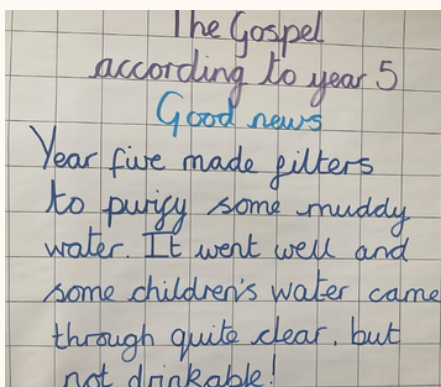 The Gospel
according to year 5
Good news
Year five made filters
to purify some muddy
water. It went well and
some children's water came
through quite clear, but
not drinkable!